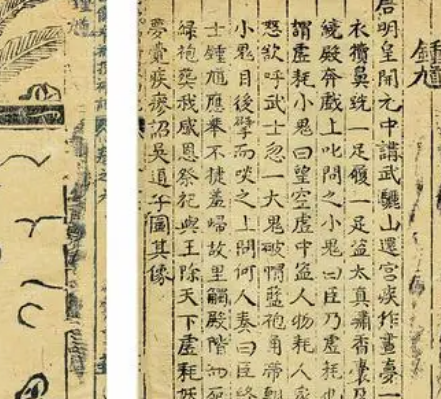 鍾馗
唐明皇開元中講武驪山還宮疾作晝夢一
衣犢鼻跣一足履一足盜太真繡香囊及
繞殿奔戲上叱問之小鬼曰臣乃虛耗也
謂虛耗小鬼曰望空虛中盜人物耗人家
怒欲呼武士忽一大鬼破帽藍袍角帶朝
小鬼目後擘而啖之上問何人奏曰臣終
士鍾馗應舉不捷羞歸故里觸殿階而死
綠袍葬我感恩祭祀與王除天下虛耗妖
夢覺疾瘳詔吳道子圖其像
鍾馗